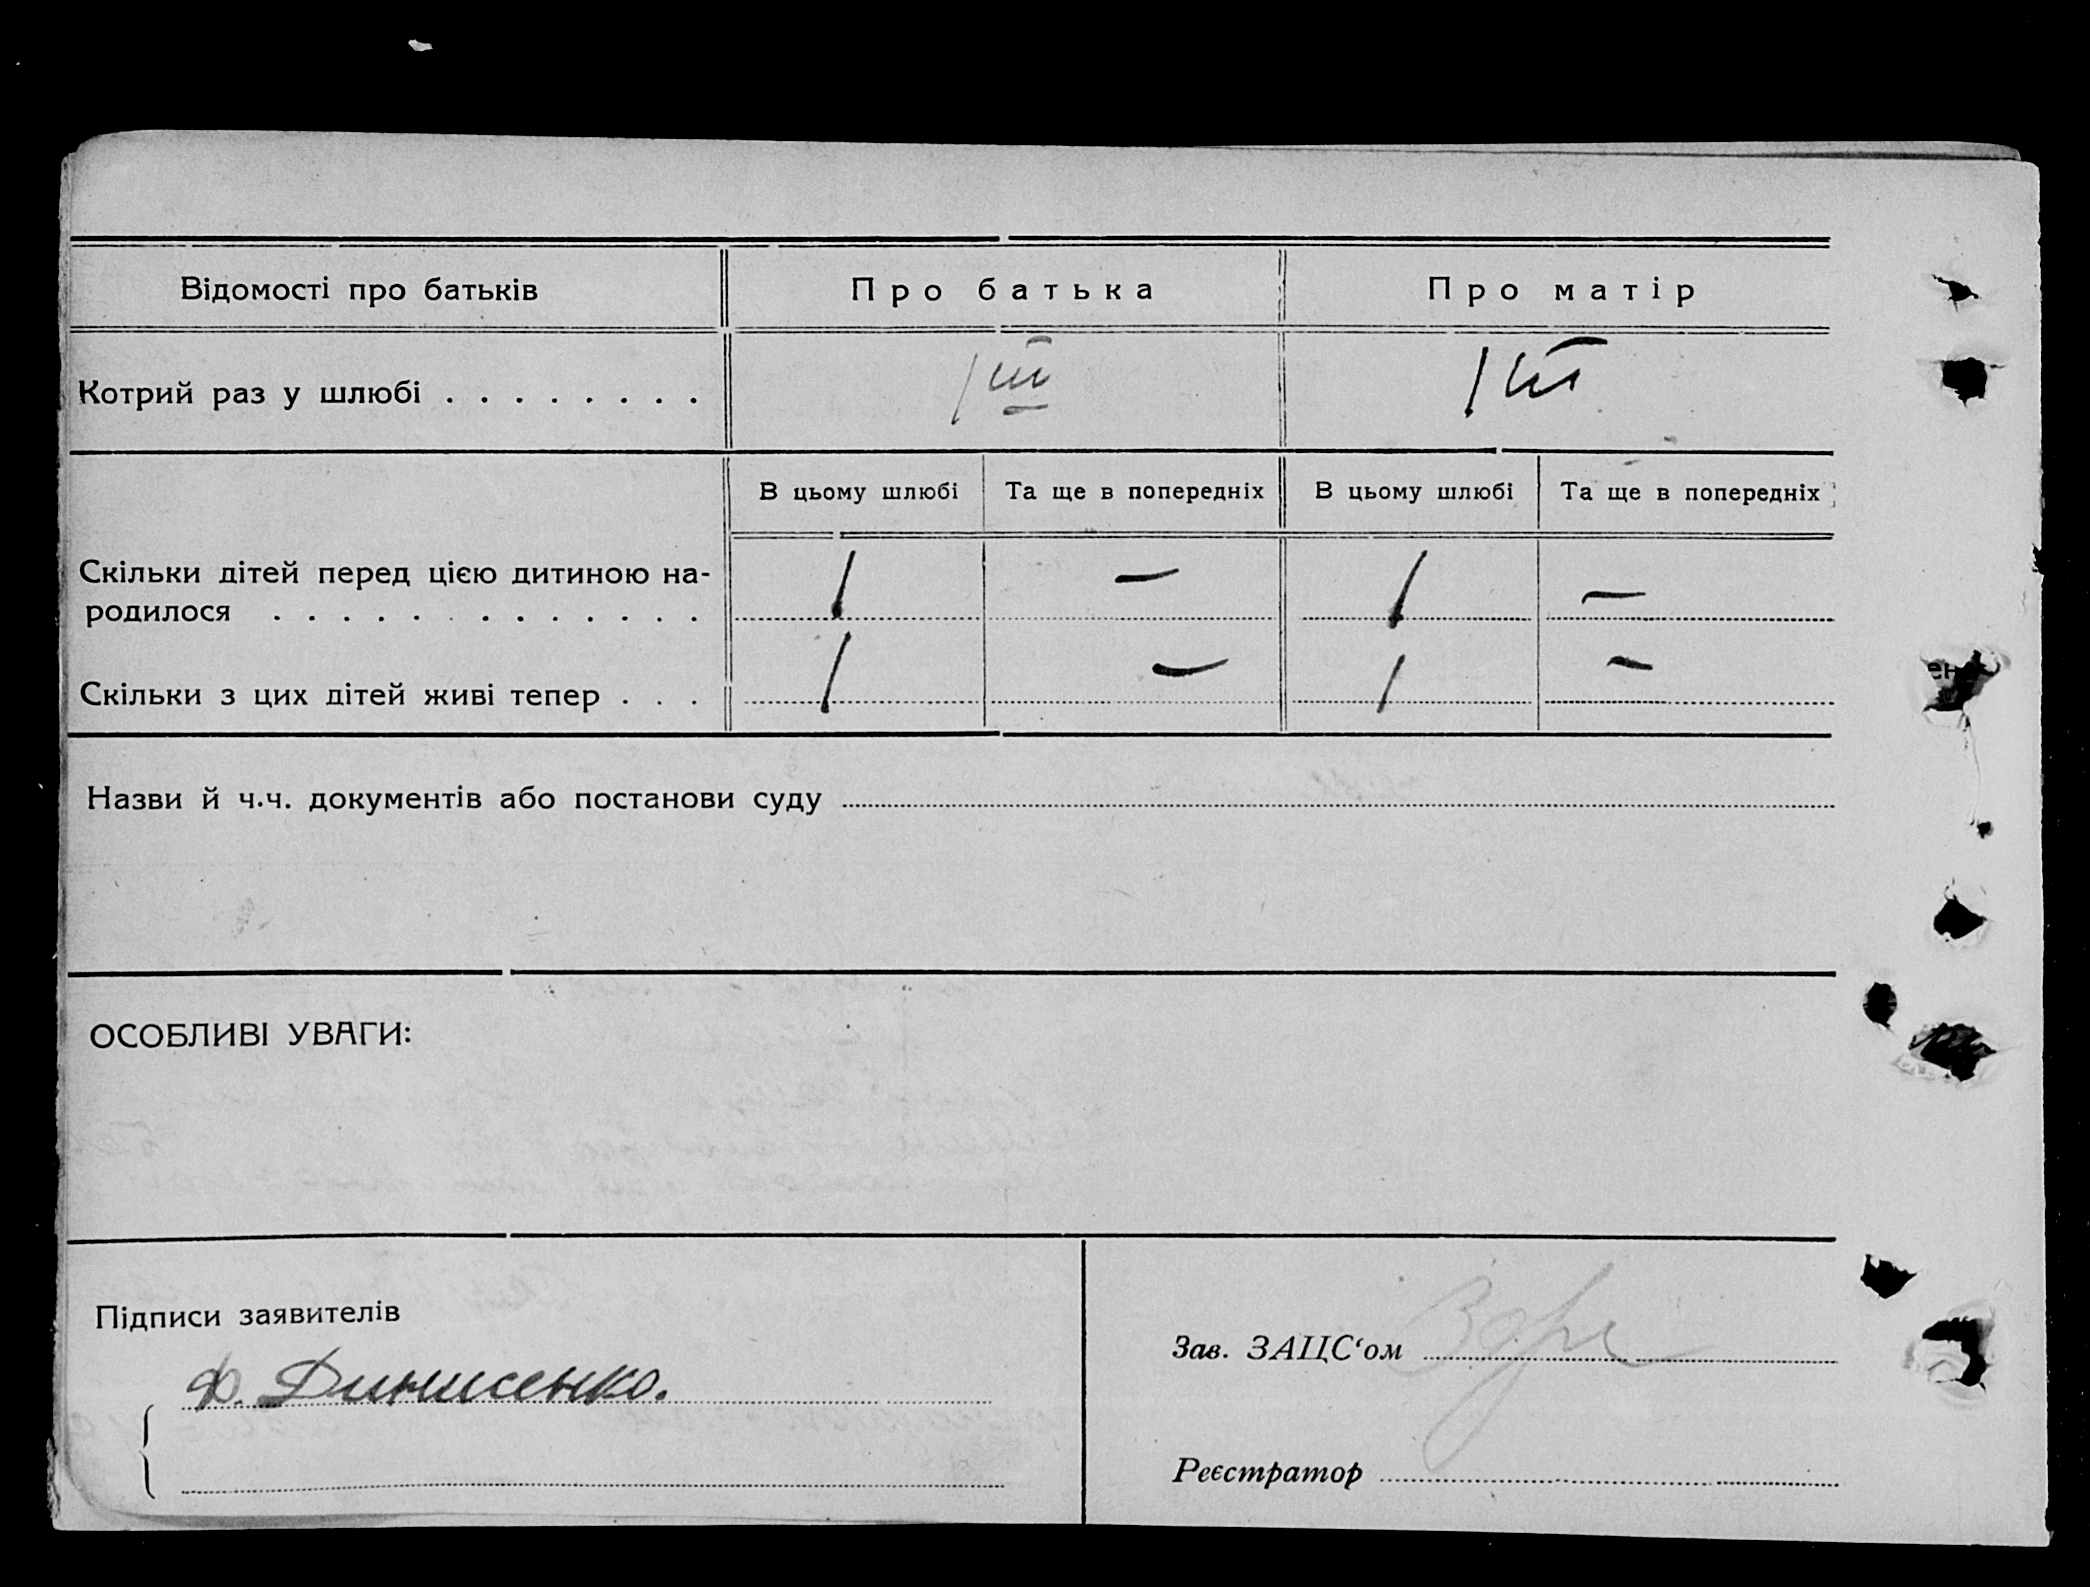 Відомості про батьків Про батька Про матір
Котрий раз у шлюбі . . . . . . . . 1ш̅ 1ш̅
В цьому шлюбі Та ще в попередніх В цьому шлюбі Та ще в попередніх
Скільки дітей перед цією дитиною на-
родилося . . . . . . . . . . . . . 1 — 1 —
Скільки з цих дітей живі тепер . . . 1 — 1 —
Назви й ч.ч. документів або постанови суду
ОСОБЛИВІ УВАГИ:
Підписи заявителів
Ф. Динисенко.
Зав. ЗАЦС‘ом
Реєстратор